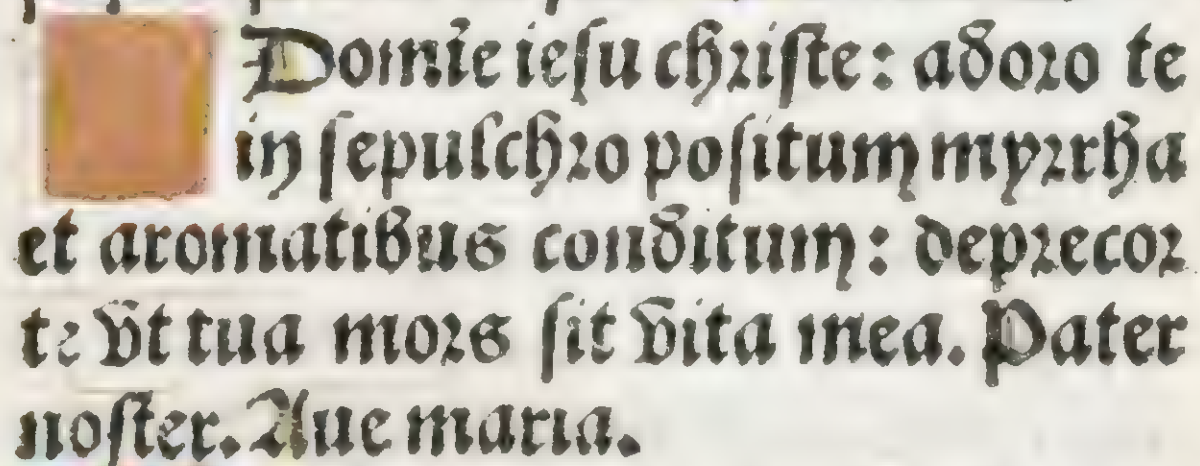 Domĩe iesu christe: adoro te
in sepulchro positum myrrha
et aromatibus conditum: deprecor
te vt tua mors sit vita mea. Pater
noster. Aue maria.